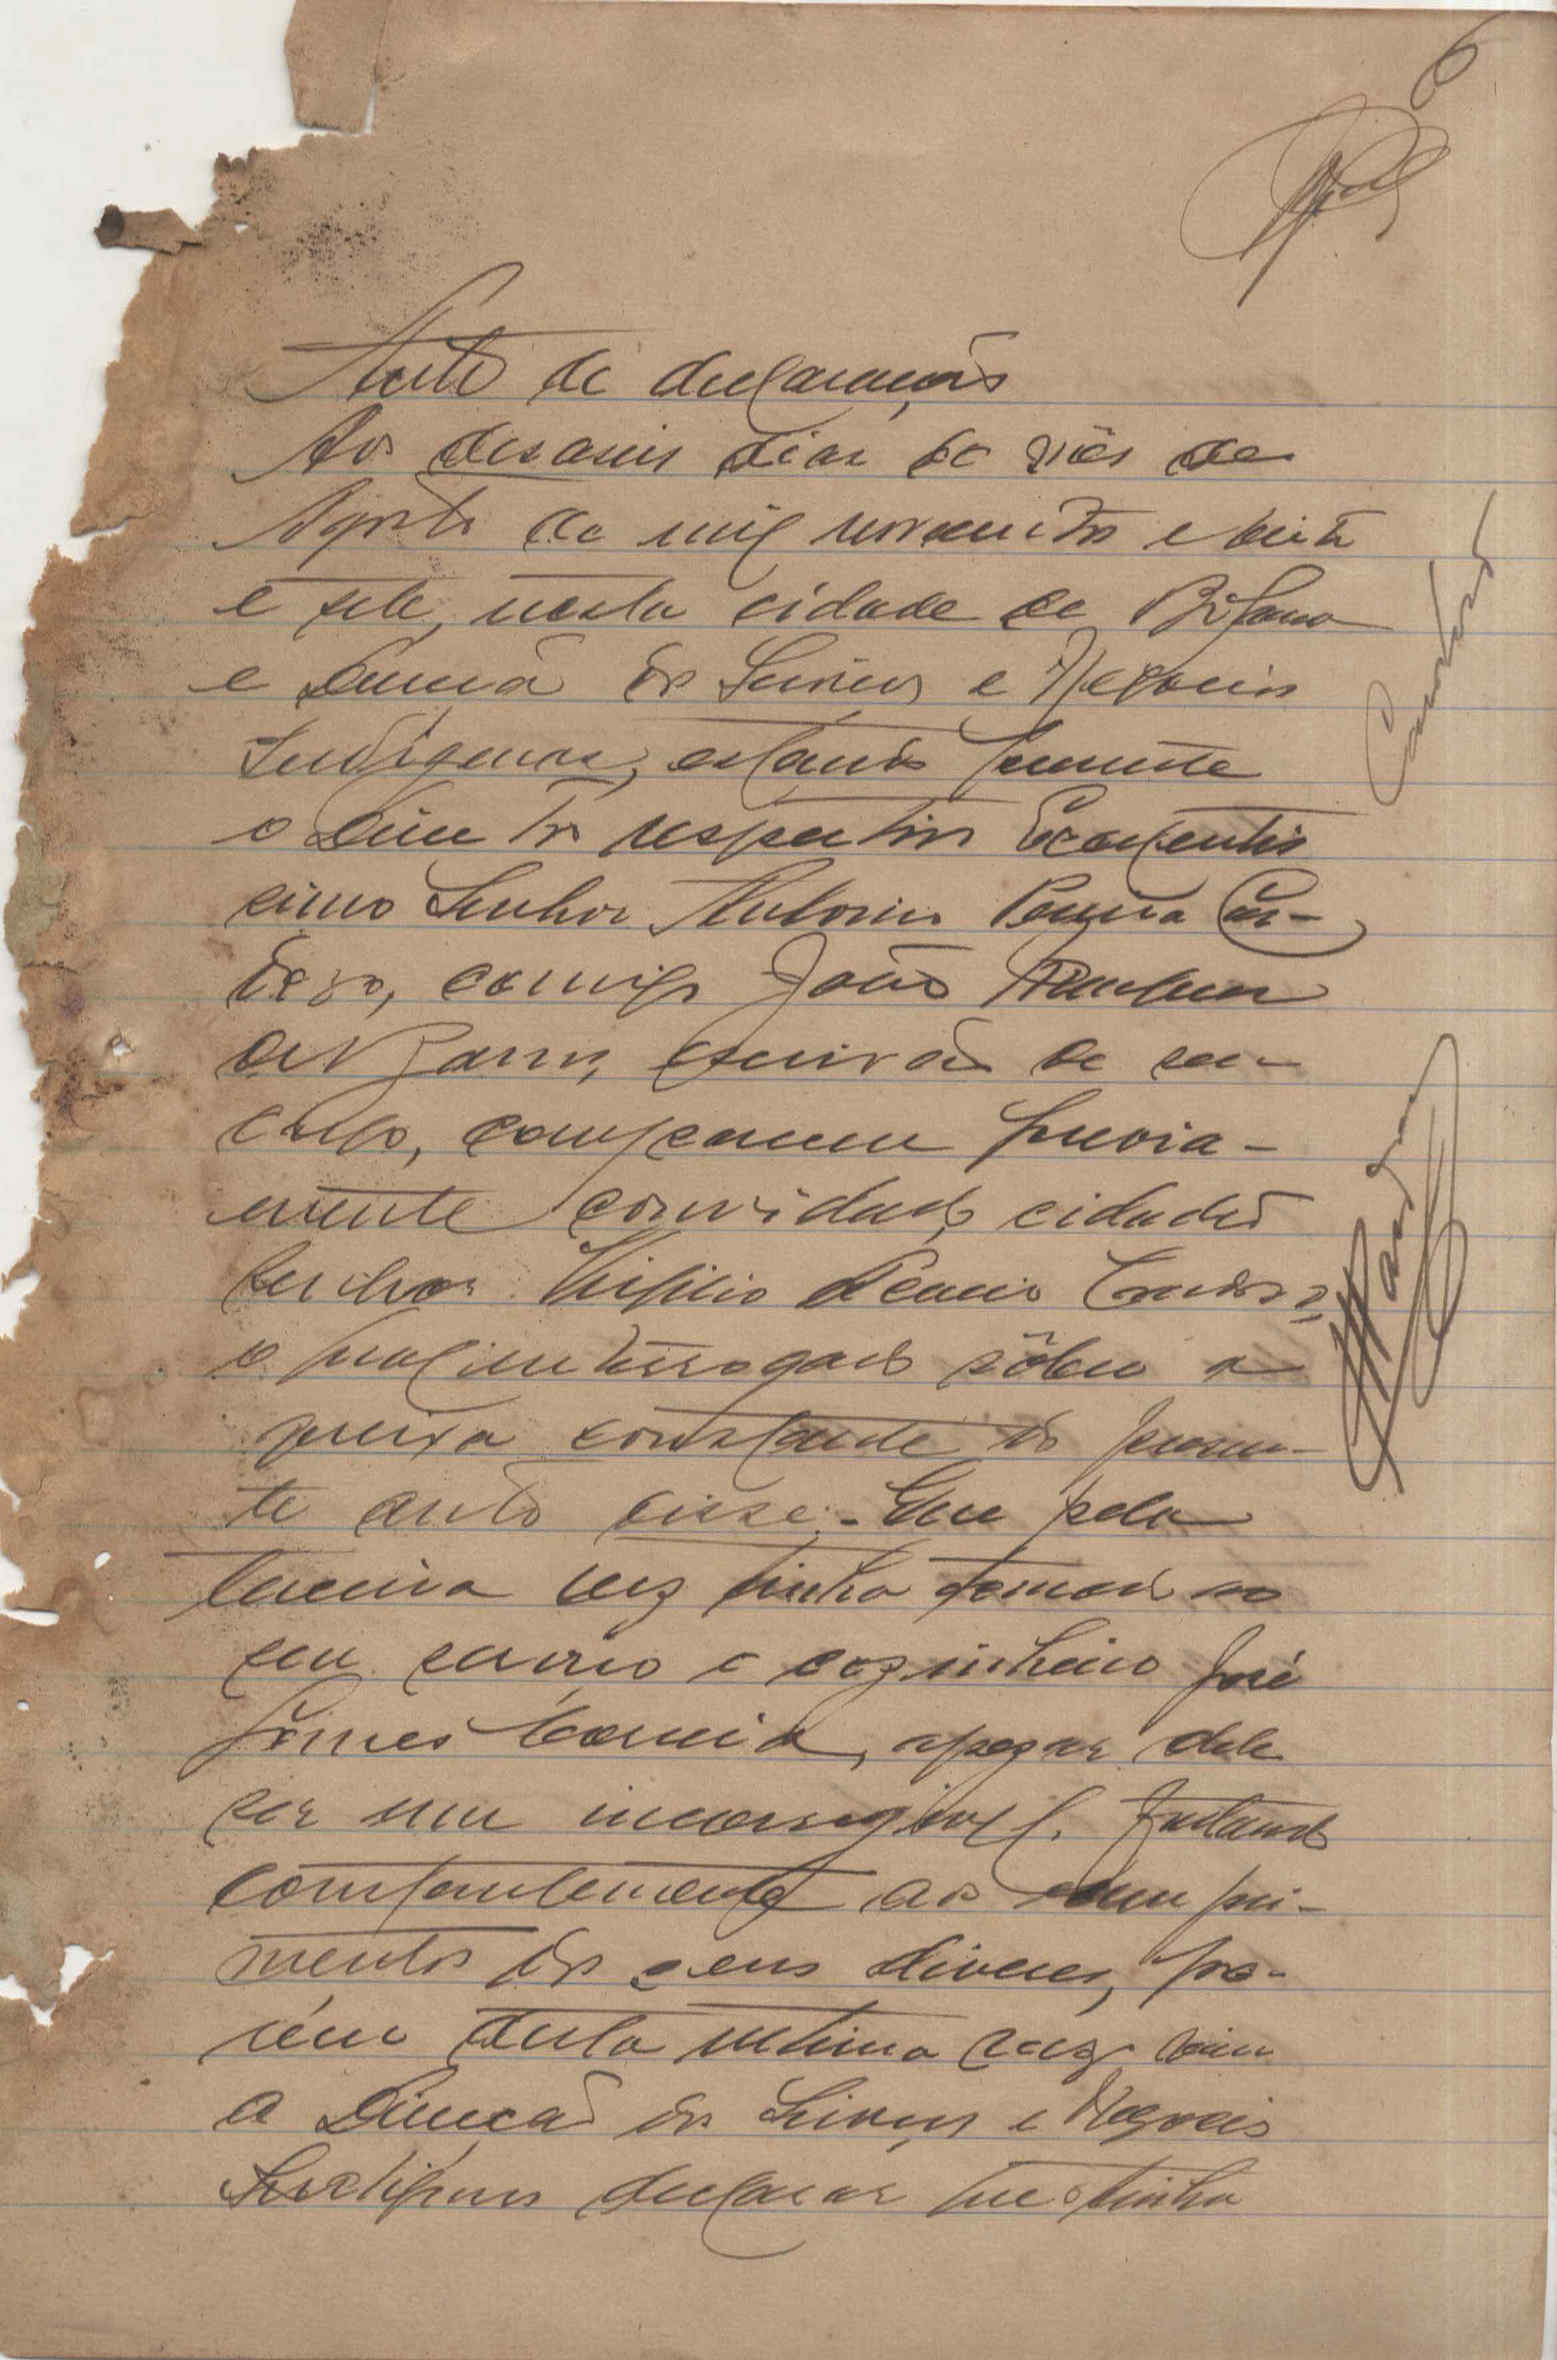 6
Auto de declarações
Aos desaseis dias do mês de
Agosto de mil novecentos e vinte
e sete, nesta cidade de Bolama
e Direcção dos Serviços e Negocios
Indigenas, estando presente
o Director respectivo Excelentis
simo Senhor Antonio Pereira Car-
doso, comigo João
de Barros, escrivão de seu
cargo, compareceu previa-
mente convidado, cidadão
senhor Cardoso,
e interrogado sôbre a
queixa constante do presen-
te auto disse: - Que pela
terceira vez tinha tomado ao
seu serviço o cozinheiro José
Gomes Correia, apezar dele
ser um incorregivel, faltando
constantemente ao cumpri-
mento dos seus diveres, po-
rém desta ultima vez veiu
a Direcção dos Serviços e Negocios
Indigenas declarar que o tinha
Cardoso